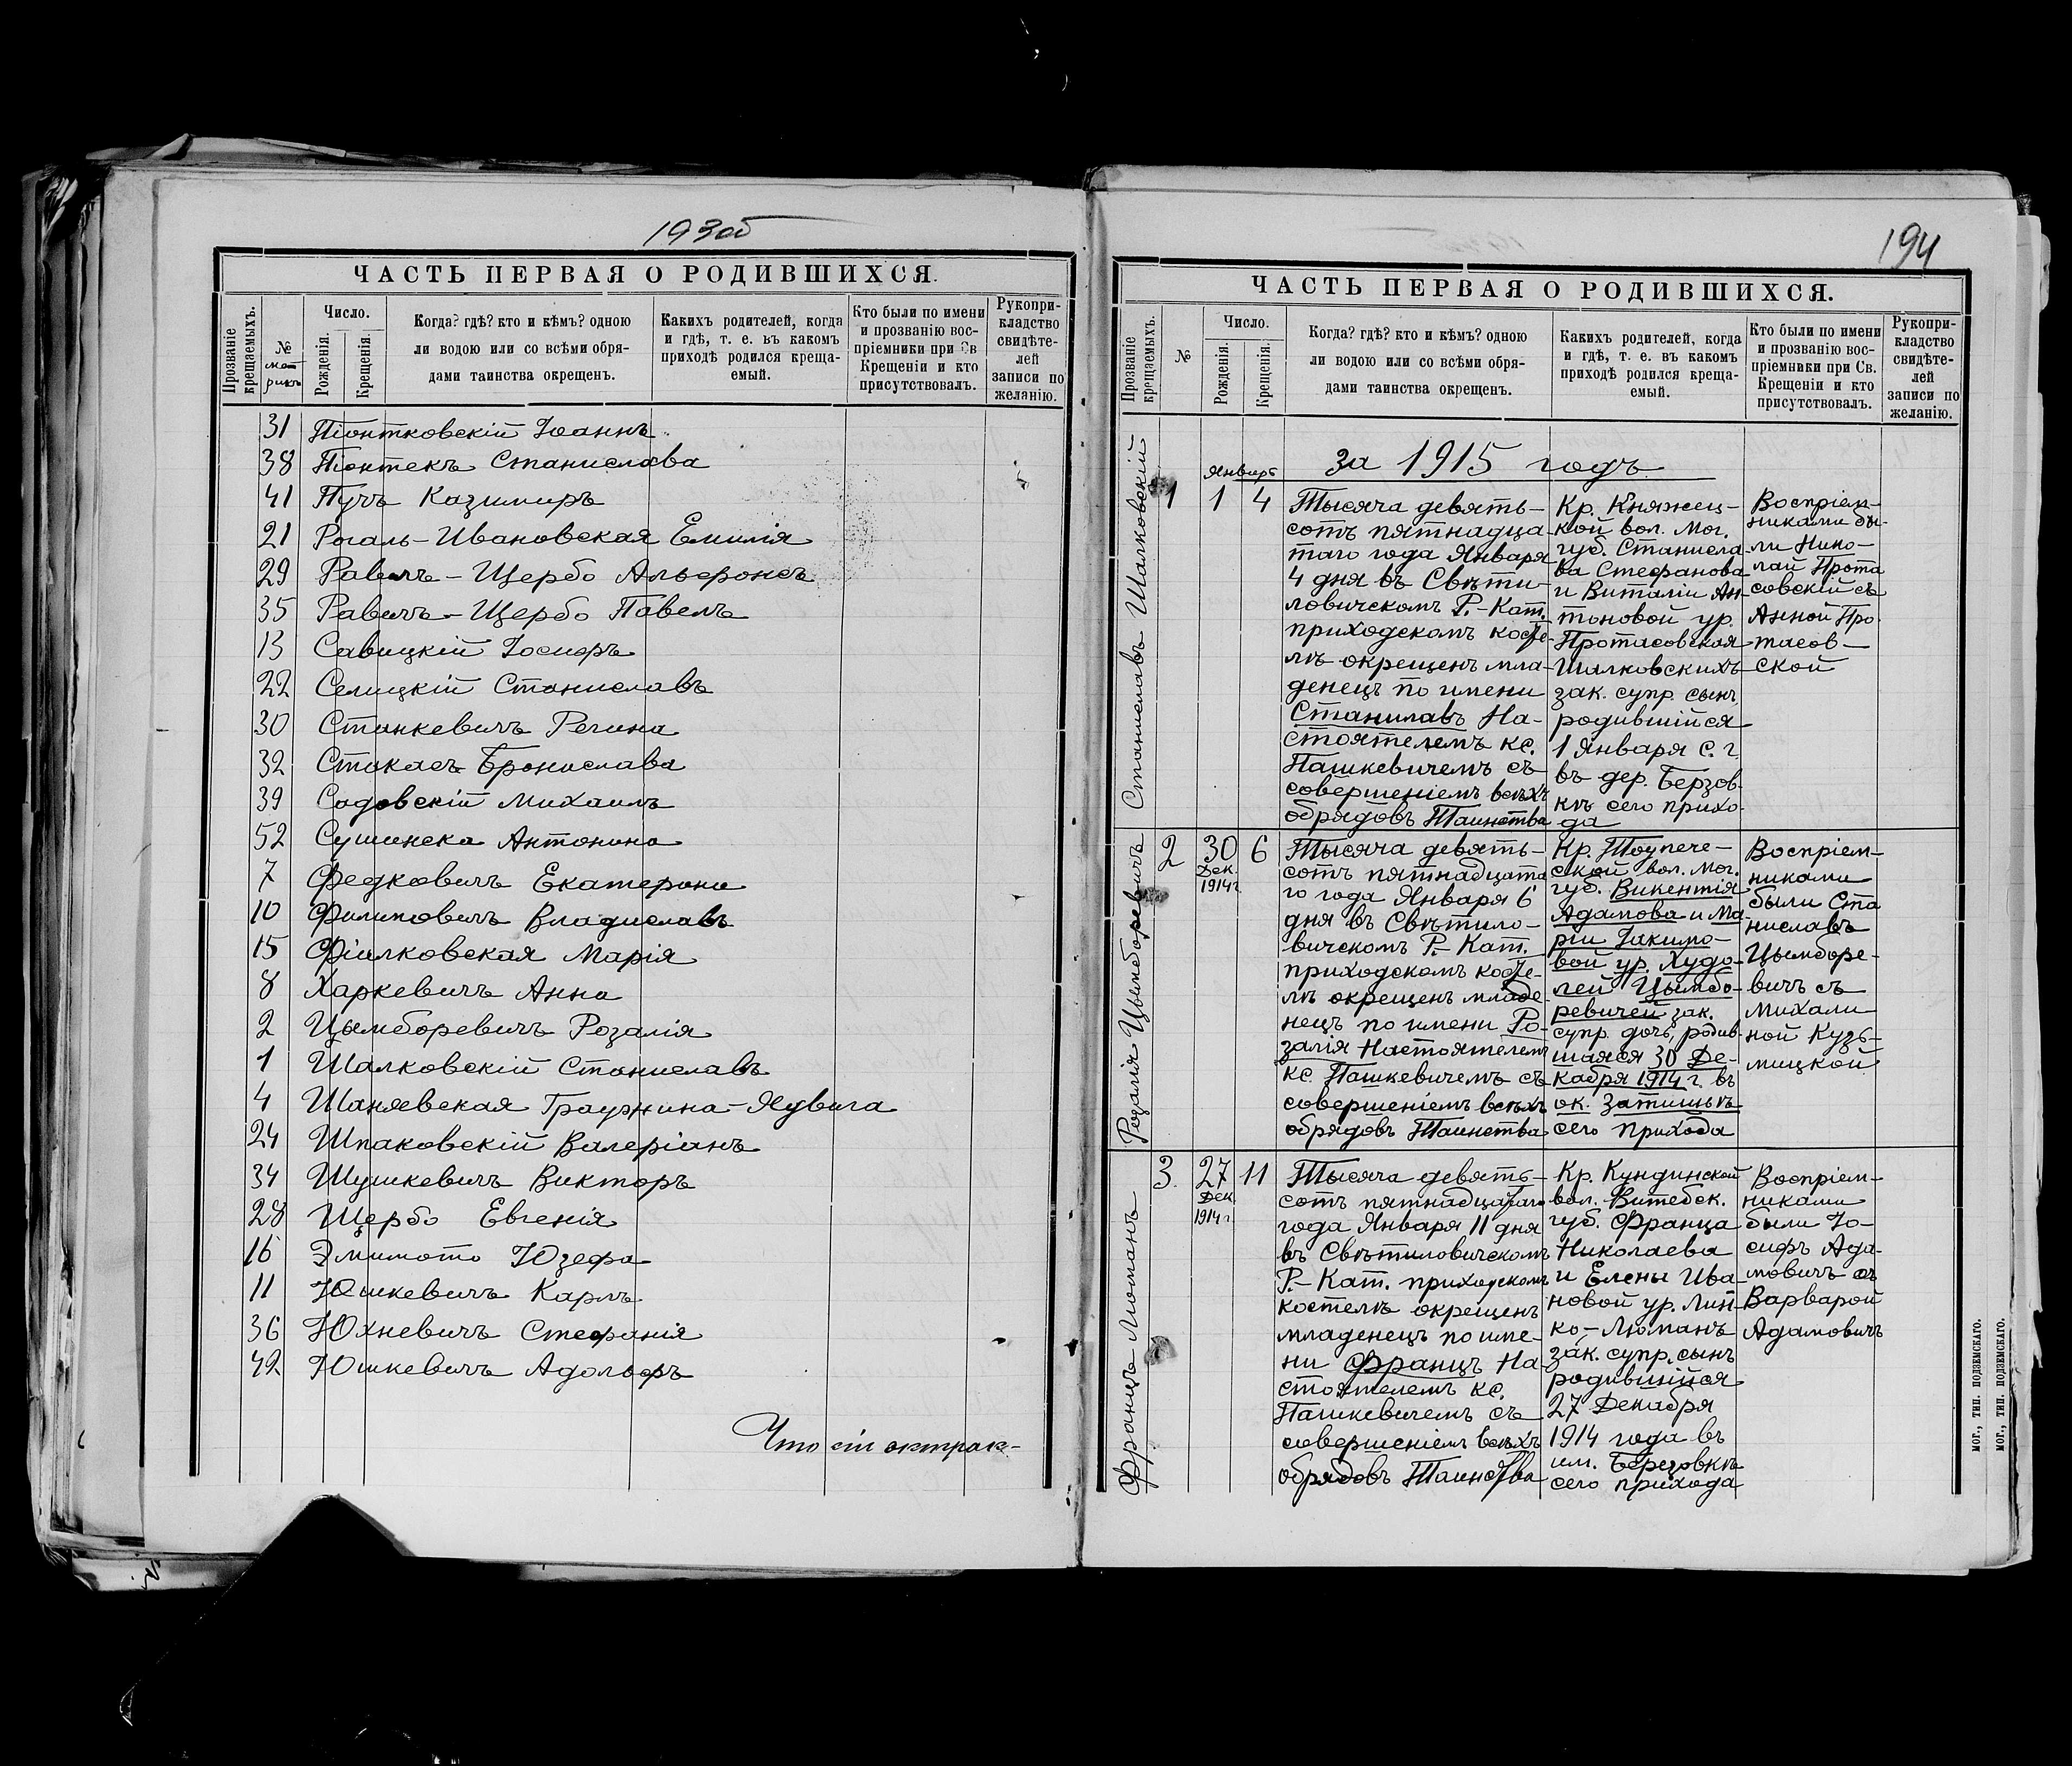 193об
ЧАСТЬ ПЕРВАЯ О РОДИВШИХСЯ.
Прозваніе крещаемыхъ.
№ метрикъ
Число.
Рожденія.
Крещенія.
Когда? гдѣ? кто и кѣмъ? одною
ли водою или со всѣми обря-
дами таинства окрещенъ.
Какихъ родителей, когда
и гдѣ, т. е. въ какомъ
приходѣ родился креща-
емый.
Кто были по имени
и прозванію вос-
пріемники при Св
Крещеніи и кто
присутствовалъ.
Рукопри-
кладство
свидѣте-
лей
записи по
желанію.
31 Піонтковскій Іоаннъ
38 Піонтекъ Станислава
41 Пучъ Казимиръ
21 Рогаль-Ивановская Емилія
29 Равичъ-Щербо Альфонсъ
35 Равичъ-Щербо Павелъ
13 Савицкій Іосифъ
22 Селицкій Станиславъ
30 Станкевичъ Регина
32 Стакасъ Бронислава
39 Садовскій Михаилъ
52 Сушинска Антонина
7 Федковичъ Екатерина
10 Филиповичъ Владиславъ
15 Фіалковская Марія
8 Харкевичъ Анна
2 Цымборевичъ Розалія
1 Шалковскій Станиславъ
4 Шаняевская Гражина-Ядвига
24 Шпаковскій Валеріанъ
34 Шушкевичъ Викторъ
28 Щербо Евгенія
16 Эмимото Юзефа
11 Юшкевичъ Карлъ
36 Юхневичъ Стефанія
42 Юшкевичъ Адольфъ
Что сіи экстрак-
194
ЧАСТЬ ПЕРВАЯ О РОДИВШИХСЯ.
Прозваніе крещаемыхъ.
№
Число.
Рожденія.
Крещенія.
Когда? гдѣ? кто и кѣмъ? одною
ли водою или со всѣми обря-
дами таинства окрещенъ.
Какихъ родителей, когда
и гдѣ, т. е. въ какомъ
приходѣ родился креща-
емый.
Кто были по имени
и прозванію вос-
пріемники при Св.
Крещеніи и кто
присутствовалъ.
Рукопри-
кладство
свидѣте-
лей
записи по
желанію.
за 1915 годъ
Январь
Станиславъ Шалковскій
1
1
4
Тысяча девять-
сотъ пятнадца-
таго года Января
4 дня въ Свѣти-
ловичскомъ Р.-Кат.
приходскомъ косте-
лѣ окрещенъ мла-
денецъ по имени
Станилавъ На-
стоятелемъ кс.
Пашкевичемъ съ
совершеніемъ всѣхъ
обрядовъ Таинства
Кр. Княжец-
кой вол. Мог.
губ. Станисла-
ва Стефанова
и Виталіи Ан-
тоновой ур.
Протасовская
Шалковскихъ
зак. супр. сынъ
родившійся
1 Января с. г.
въ дер. Берзов-
кѣ сего прихо-
да
Воспріем-
никами бы-
ли Нико-
лай Прота
совскій съ
Анной Про-
тасов-
ской
Розалія Цымборевичъ
2
30
Дек.
1914 г.
6
Тысяча девять-
сотъ пятнадцата
го года Января 6
дня въ Свѣтило-
вичскомъ Р.-Кат.
приходскомъ косте-
лѣ окрещенъ младе-
нецъ по имени Ро-
залія Настоятелемъ
кс. Пашкевичемъ съ
совершеніемъ всѣхъ
обрядовъ Таинства
Кр. Тоупече-
ской вол. Мог.
губ. Викентія
Адамова и Ма-
ріи Іакимо-
вой ур. Худо-
лей Цымбо-
ревичей зак.
супр. дочь, родив-
шаяся 30 Де-
кабря 1914 г. въ
ок. Затишьѣ
сего прихода
Воспріем-
никами
были Ста
ниславъ
Цымборе-
вичъ съ
Михали
ной Кузь-
мицкой
Францъ Люманъ
3.
27
Дек.
1914 г.
11
Тысяча девять-
сотъ пятнадцатаго
года Января 11 дня
въ Свѣтиловичскомъ
Р.-Кат. приходскомъ
костелѣ окрещенъ
младенецъ по име-
ни Францъ На-
стоятелемъ кс.
Пашкевичемъ съ
совершеніемъ всѣхъ
обрядовъ Таинства
Кр. Кундинской
вол. Витебск.
губ. Франца
Николаева
и Елены Ива-
новой ур. Лип-
ко-Люманъ
зак. супр. сынъ
родившійся
27 Декабря
1914 года въ
им. Березовкѣ
сего прихода
Воспріем-
никами
были Іо-
сифъ Ада-
мовичъ съ
Варварой
Адамовичъ
МОГ., ТИП. ПОДЗЕМСКАГО.
МОГ., ТИП. ПОДЗЕМСКАГО.